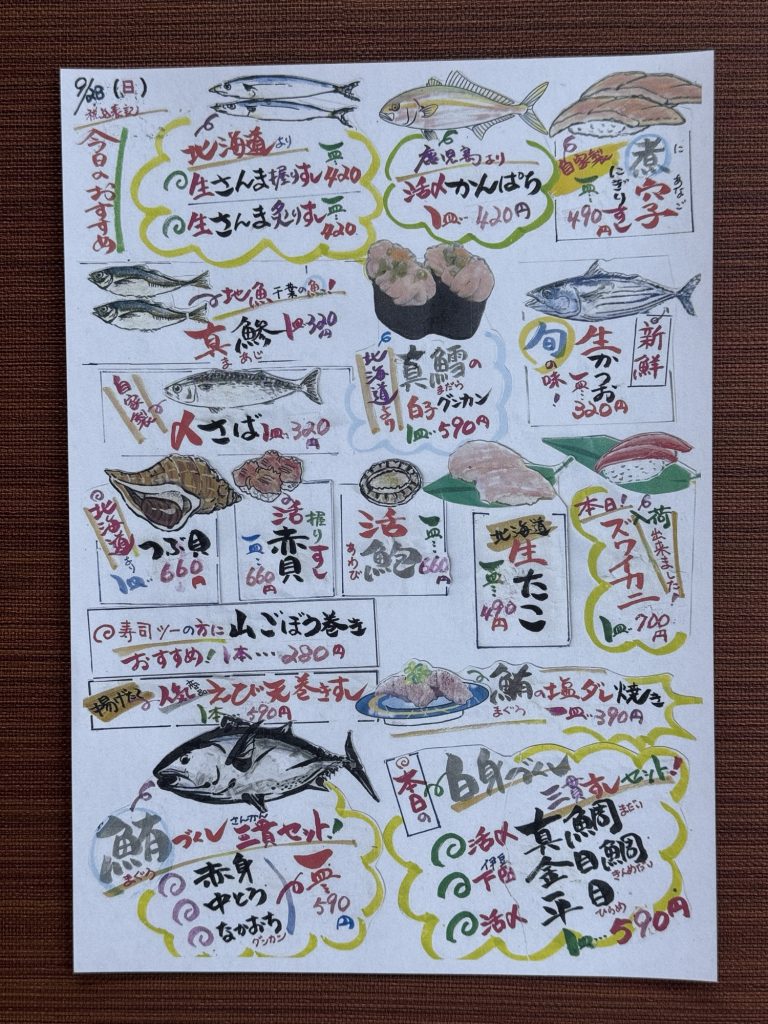 9/28(日)
税込表記
今日のおすすめ
北海道より
生さんま握りすし 一皿…420
生さんま炙りすし 一皿…420
鹿児島より
活〆かんぱち
1皿…420円
自家製
煮穴子
に あなご
にぎりすし
一皿…490円
地魚 千葉の魚っ!
真鯵 1皿320円
ま あじ
自家製
〆さば 1皿…320円
北海道より
真鱈の
まだら
白子グンカン
1皿…590円
旬の味!
新鮮
生かつお
一皿…320円
北海道より
つぶ貝
1皿 660円
活赤貝
握りすし
一皿…660円
活鮑
あわび
一皿…660円
北海道
生たこ
一皿…490円
本日!
入荷出来ました!
ズワイカニ
1皿…700円
寿司ツーの方に 山ごぼう巻き
おすすめ! 1本…280円
揚げたて 人気 えび天巻きすし
1本…590円
鮪の塩ダレ焼き
まぐろ 一皿…390円
鮪づくし 三貫セット!
まぐろ さんかん
赤身
中とろ
なかおち
グンカン
一皿…590円
本日の
白身づくし
三貫すしセット!
活〆 真鯛 まだい
伊豆下田 金目鯛 きんめだい
活〆 平目 ひらめ
1皿…590円